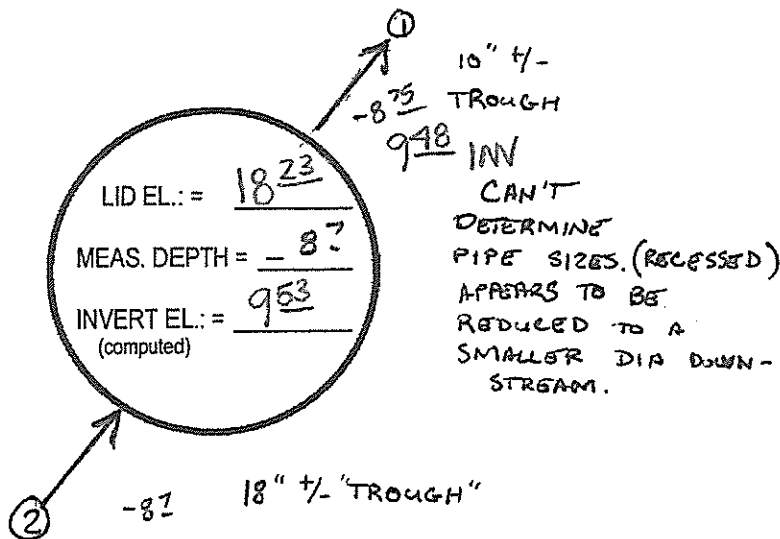 ①
10" +/-
-8 75 TROUGH
9 48 INV
CAN'T
DETERMINE
PIPE SIZES. (RECESSED)
APPEARS TO BE
REDUCED TO A
SMALLER DIA DOWN-
STREAM.
LID EL.: = 18 23
MEAS. DEPTH = - 8 7
INVERT EL.: = 9 53
(computed)
② -8 7 18" +/- "TROUGH"